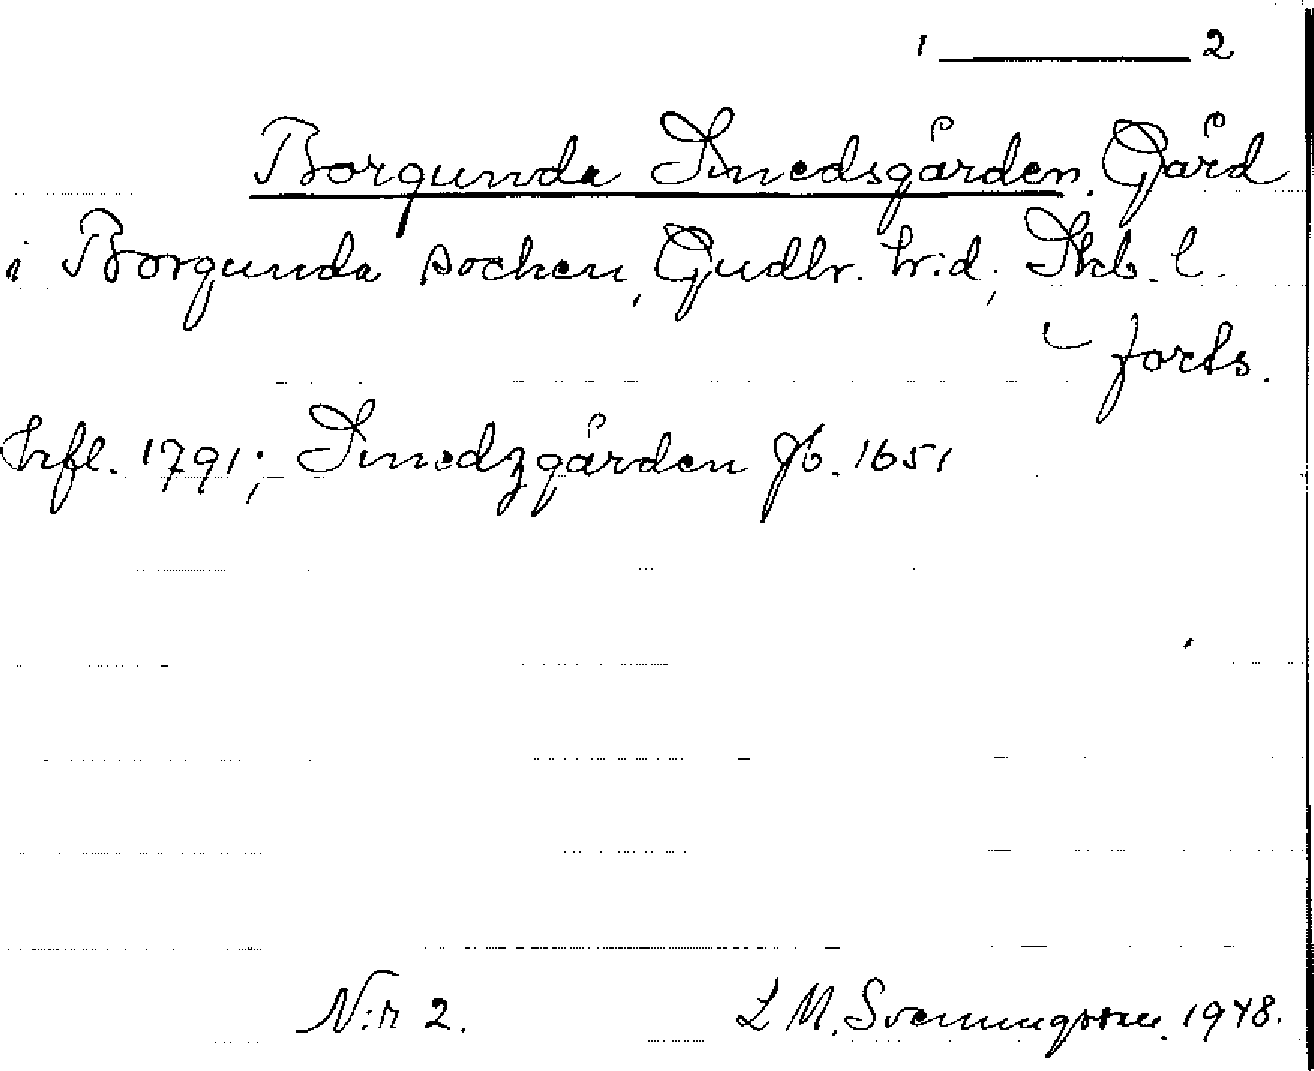 1 ——— 2
Borgunda Smedsgården. Gård
i Borgunda socken, Gudhr. h:d, Skb. l.
forts.
1791; Smedzgården Jb. 1651
N:r 2. L M. Svenningsson. 1948.